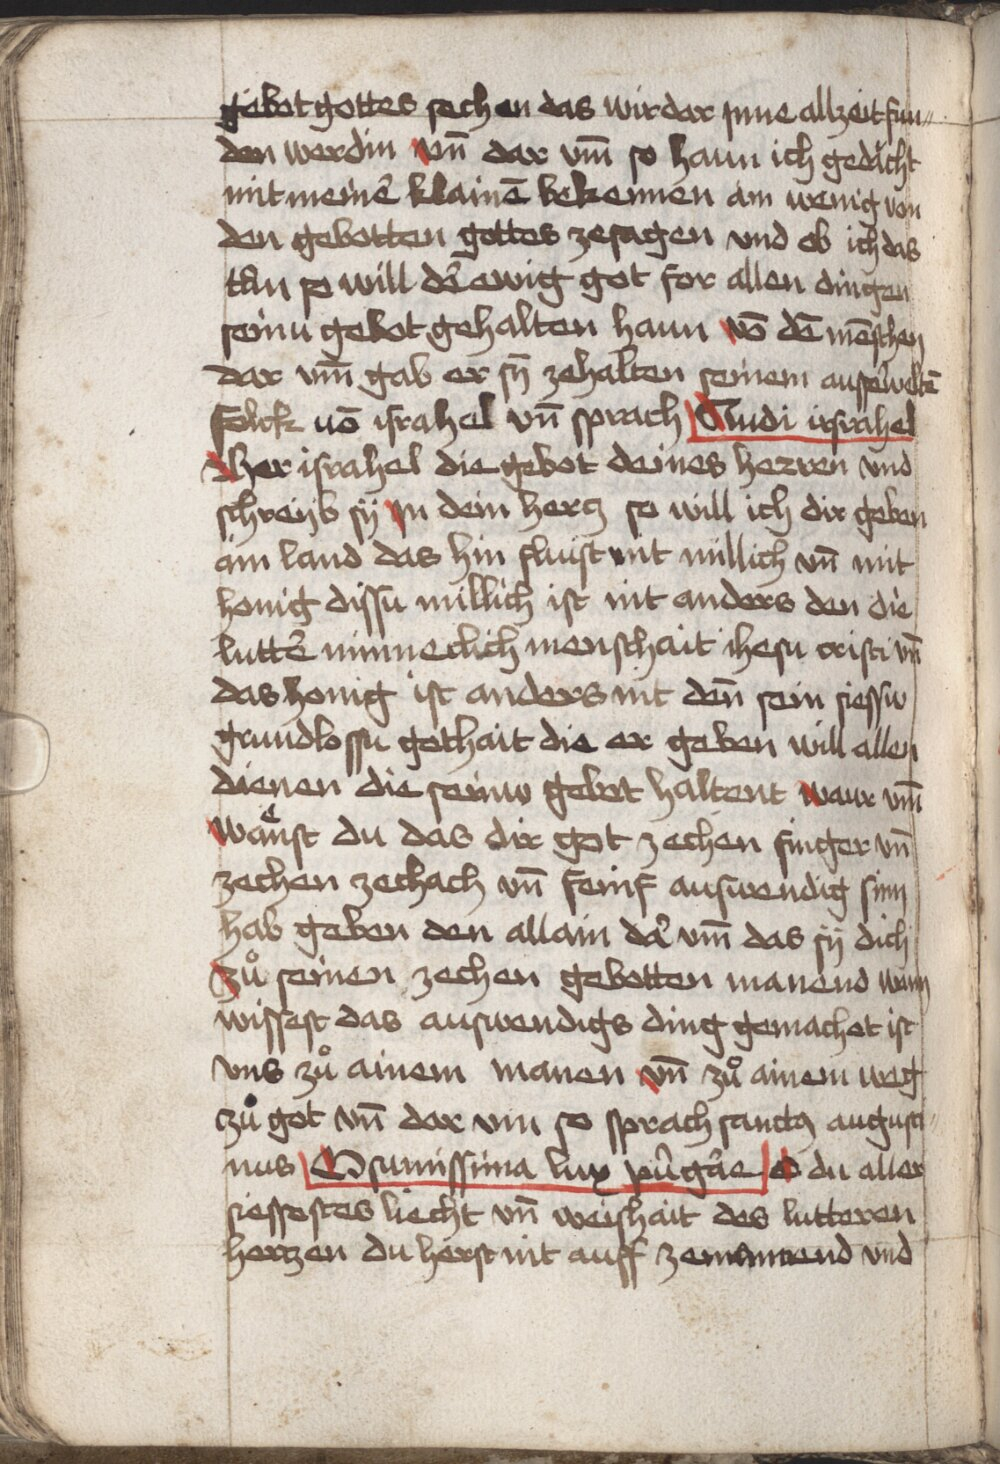 gebot gottes sechen das wir dar jnne allzeit fun-
den werdin vn̄ dar vm̄ so haun ich gedacht
mit meinē klainē bekennen ain wenig von
den gebotten gottes zesagen vnd ob ich das
tūn so will dē ewig got for allen dingen
seinu gebot gehalten haun vō dē mēschen
dar vm̄ gab er sÿ zehalten seinem ausserweltē
folck vō israhel vn̄ sprach Audi irsrahel
Her israhel die gebot deines herren vnd
schreyb sÿ jn dein hercz so will ich dir geben
ain land das hin fluist mit millich vn̄ mit
honig dissu millich ist nit anders den die
lutter̄ minneclich menschait ihesu cristi vn̄
das honig ist anders nit den̄ sein siessu
grundlossu gothait die er geben will allen
dienen die seinw gebot haltent waur vm̄
wāͤnst du das dir got zechen finger vn̄
zechen zechach vn̄ feinf auswendig sinn
hab geben den allain dar̄ vm̄ das sÿ dich
zů seinen zechen gebotten manend wann
wissest das auswendigs ding gemachet ist
vns zů ainem manen vn̄ zů ainem weg
zů got vn̄ dar vm so sprach sanctꝯ augusti-
nus O sumissima lux purgāe O du aller
siessestes liecht vn̄ weishait des lutteren
hertzen du herst nit auff ze vnd